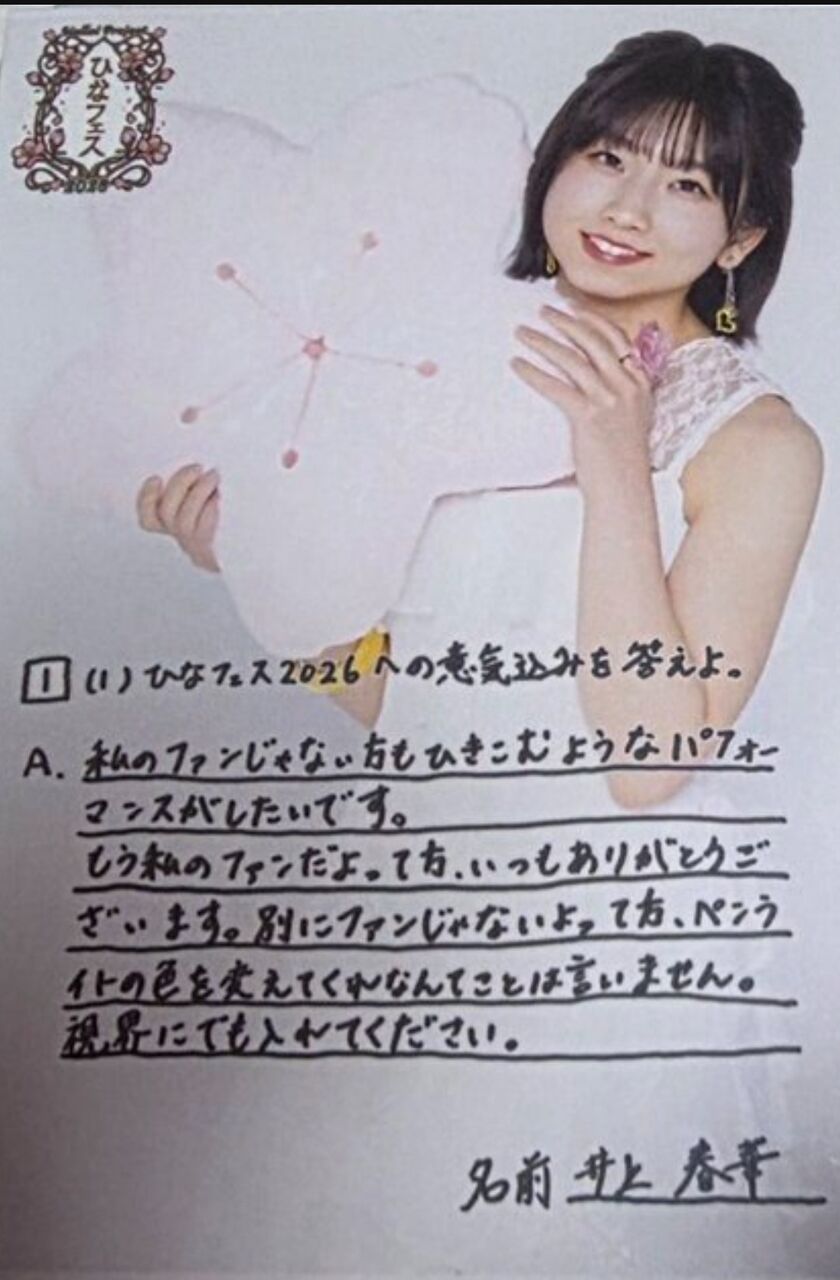 Hello! Project
ひなフェス
2026
1 (1) ひなフェス2026への意気込みを答えよ。
A. 私のファンじゃない方もひきこむようなパフォー
マンスがしたいです。
もう私のファンだよって方、いつもありがとうご
ざいます。別にファンじゃないよって方、ペンラ
イトの色を変えてくれなんてことは言いません。
視界にでも入れてください。
名前 井上 春華